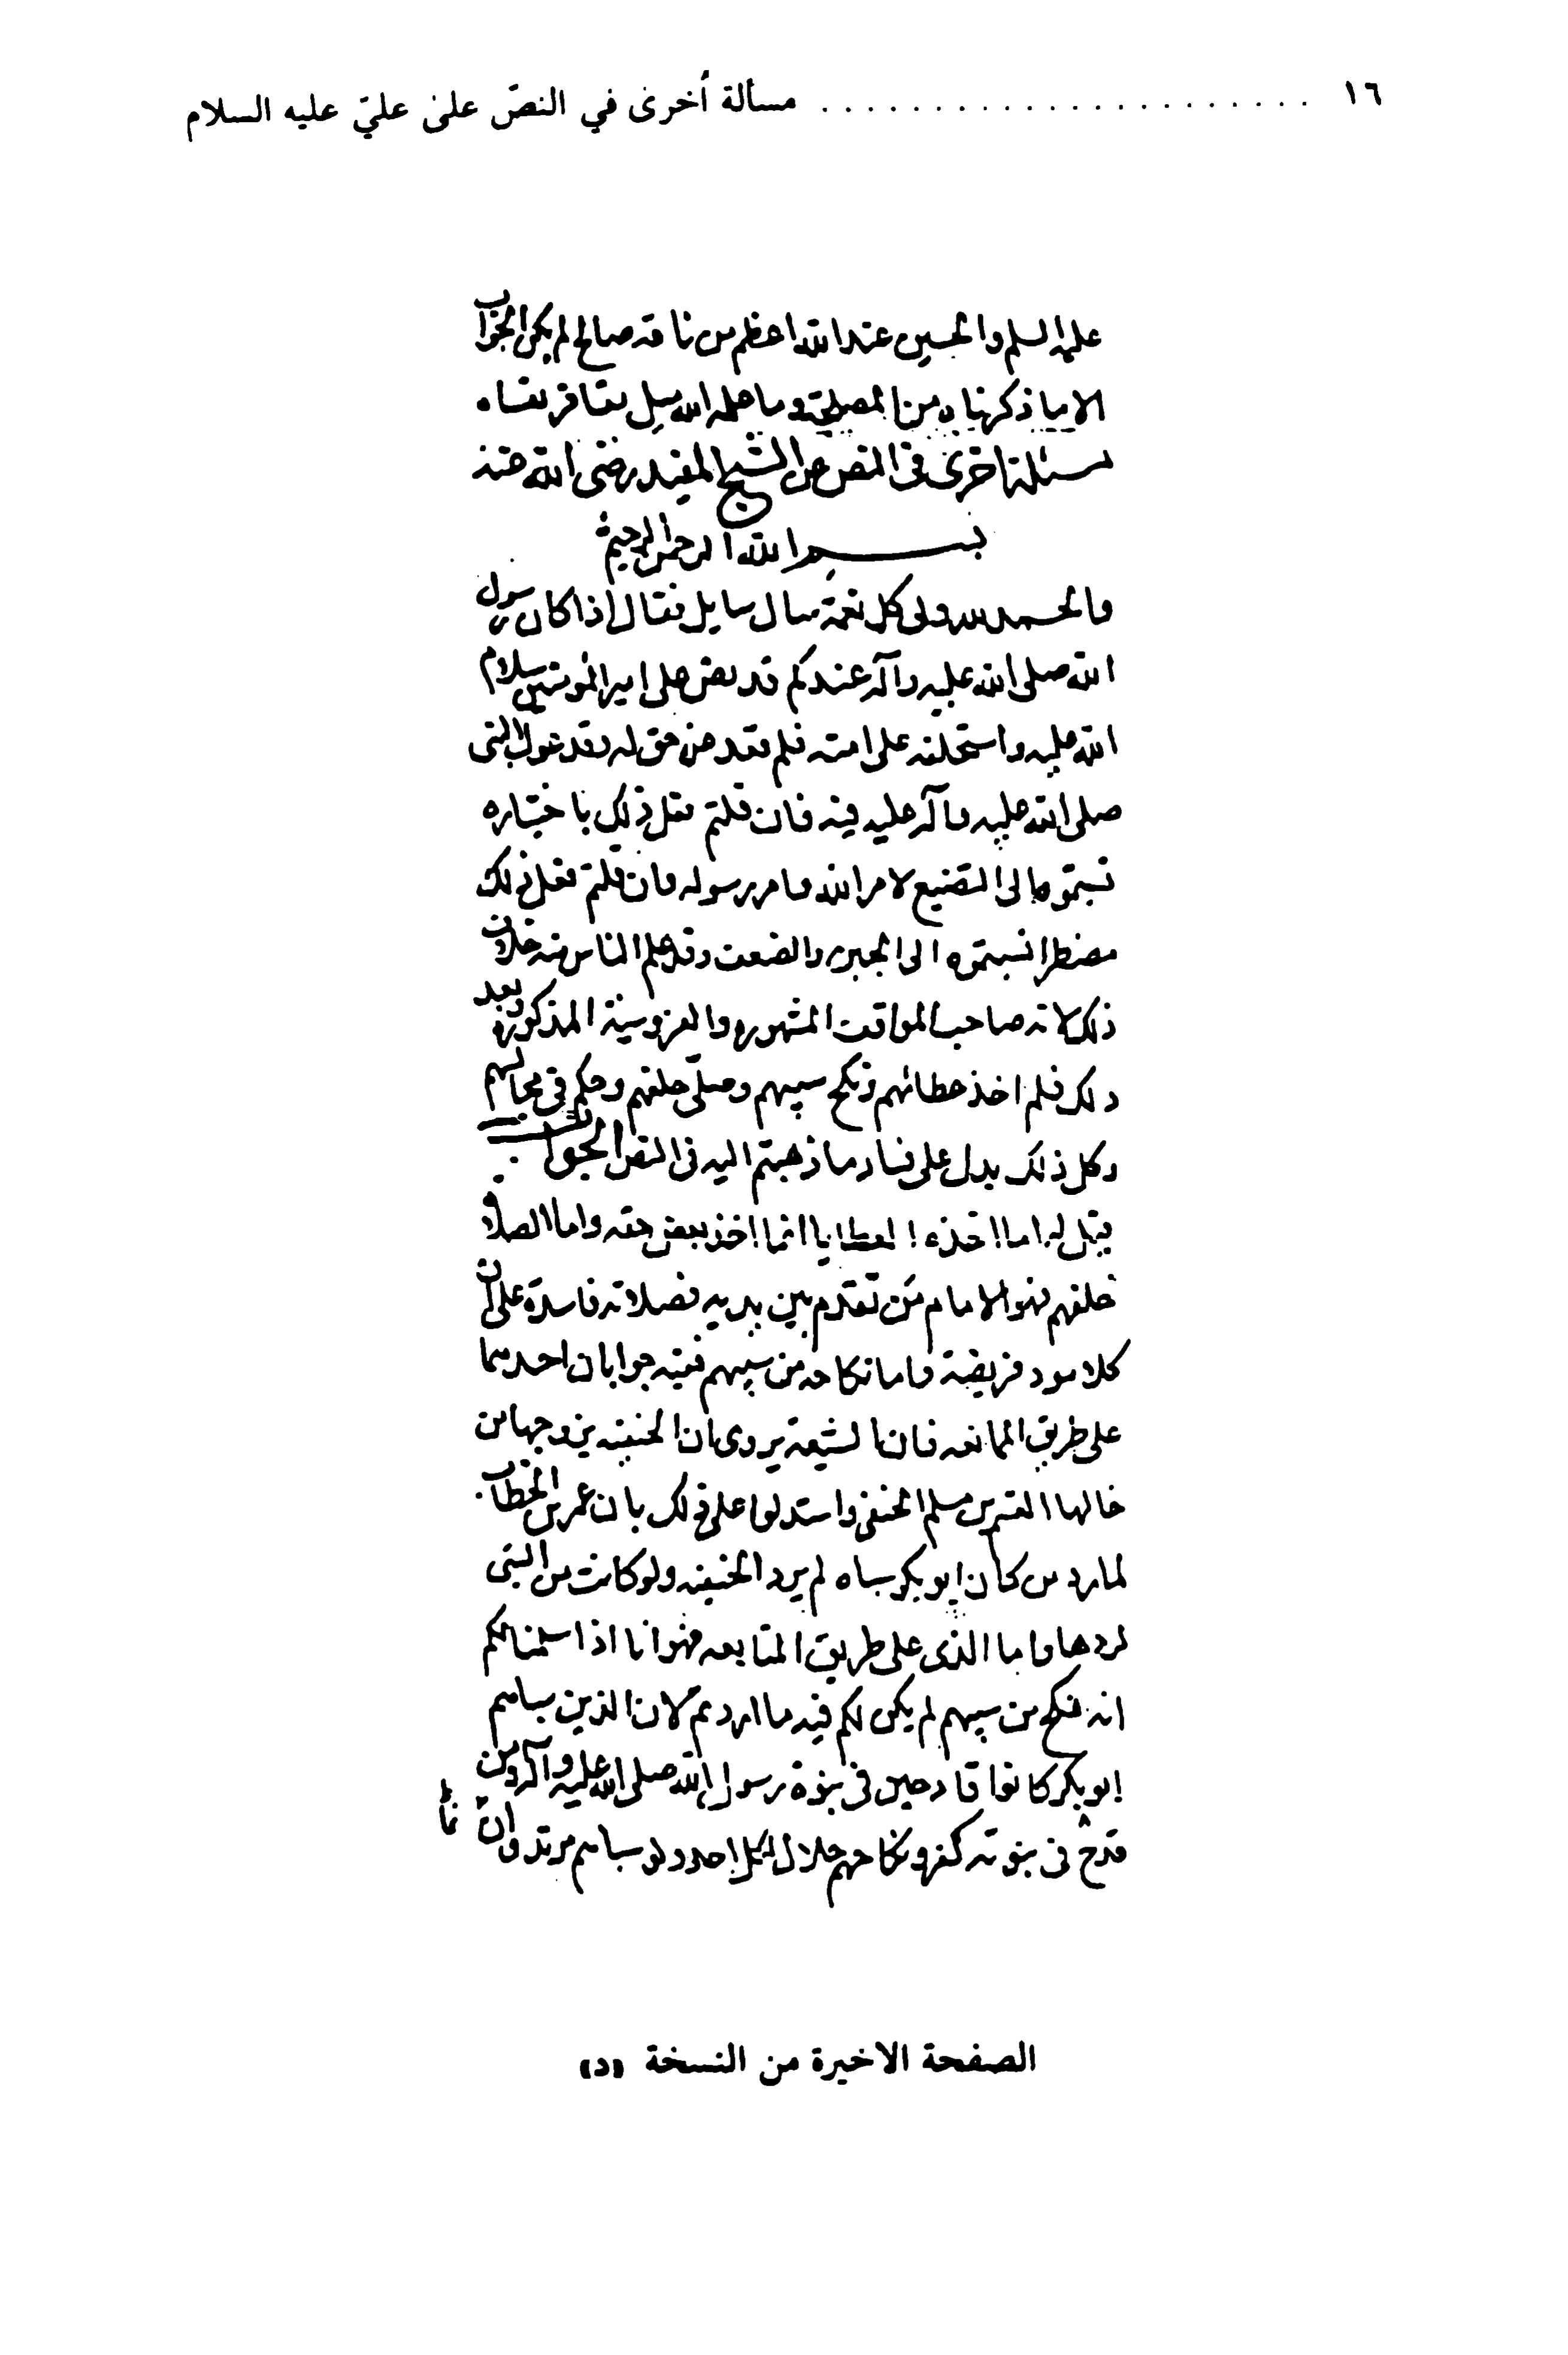 ١٦ . . . . . . . . . . . . . . . . . . . . . . مسألة أخرى في النصّ على عليّ عليه السلام
عليه السلم والحسين عند الله اعظم من ناقة صالح لم يكن الجواب
الا ما ذكرناه من المصلحة وما علمه الله
مسئلة اخرى فى النص عن الشيخ المفيد رضى الله عنه
بسم الله الرحمن الرحيم
والحمد لله ولى كل نعمة سال سايل فقال اذا كان رسول
الله صلى الله عليه وآله عندكم قد نص على امير المؤمنين سلام
الله عليه واستخلفه على امته فلم قعد عن حق له قد عول النبى
صلى الله عليه وآله عليه فيه فان قلتم فعل ذلك باختياره
نسبتموه الى التضييع لامر الله وامر رسوله وان قلتم فعل ذلك
مضطرا نسبتموه الى الجبن والضعف وقد علم الناس منه خلاف
ذلك لانه صاحب المواقف المشهوره والفروسية المذكورة وبعد
ذلك فلم اخذ عطائهم ونكح سبيهم وصلى خلفهم وحكم فى مجالسهم
وكل ذلك يدل على فساد ما ذهبتم اليه فى النص الجواب
يقل له اما اخذه العطايا انما اخذ بعض حقه واما الصلاة
خلفهم فهو الامام من تقدم بين يديه فصلاته فاسدة على ان
كلا مود فريضة واما نكاحه من سبيهم ففيه جوابان احدهما
على طريق الممانعه فان الشيعة يروى ان الحنفيه زوجها من
خالها القسم بن مسلم الحنفى واستدلوا على ذلك بان عمر بن الخطاب
لما رد من كان ابو بكر سباه لم يرد الحنفيه ولو كانت من السبى
لردها واما الذى على طريق المتابعه فهو انا اذا سلمنا لكم
انه نكح من سبيهم لم يكن لكم فيه ما اردتم لان الذين سباهم
ابو بكر كانوا قادحين فى نبوة رسول الله صلى الله عليه وآله ومن
قدح فى نبوته كفر ونكاحهم حلال لكل احد ولو سباهم مرتد وان
الصفحة الاخيرة من النسخة «د»